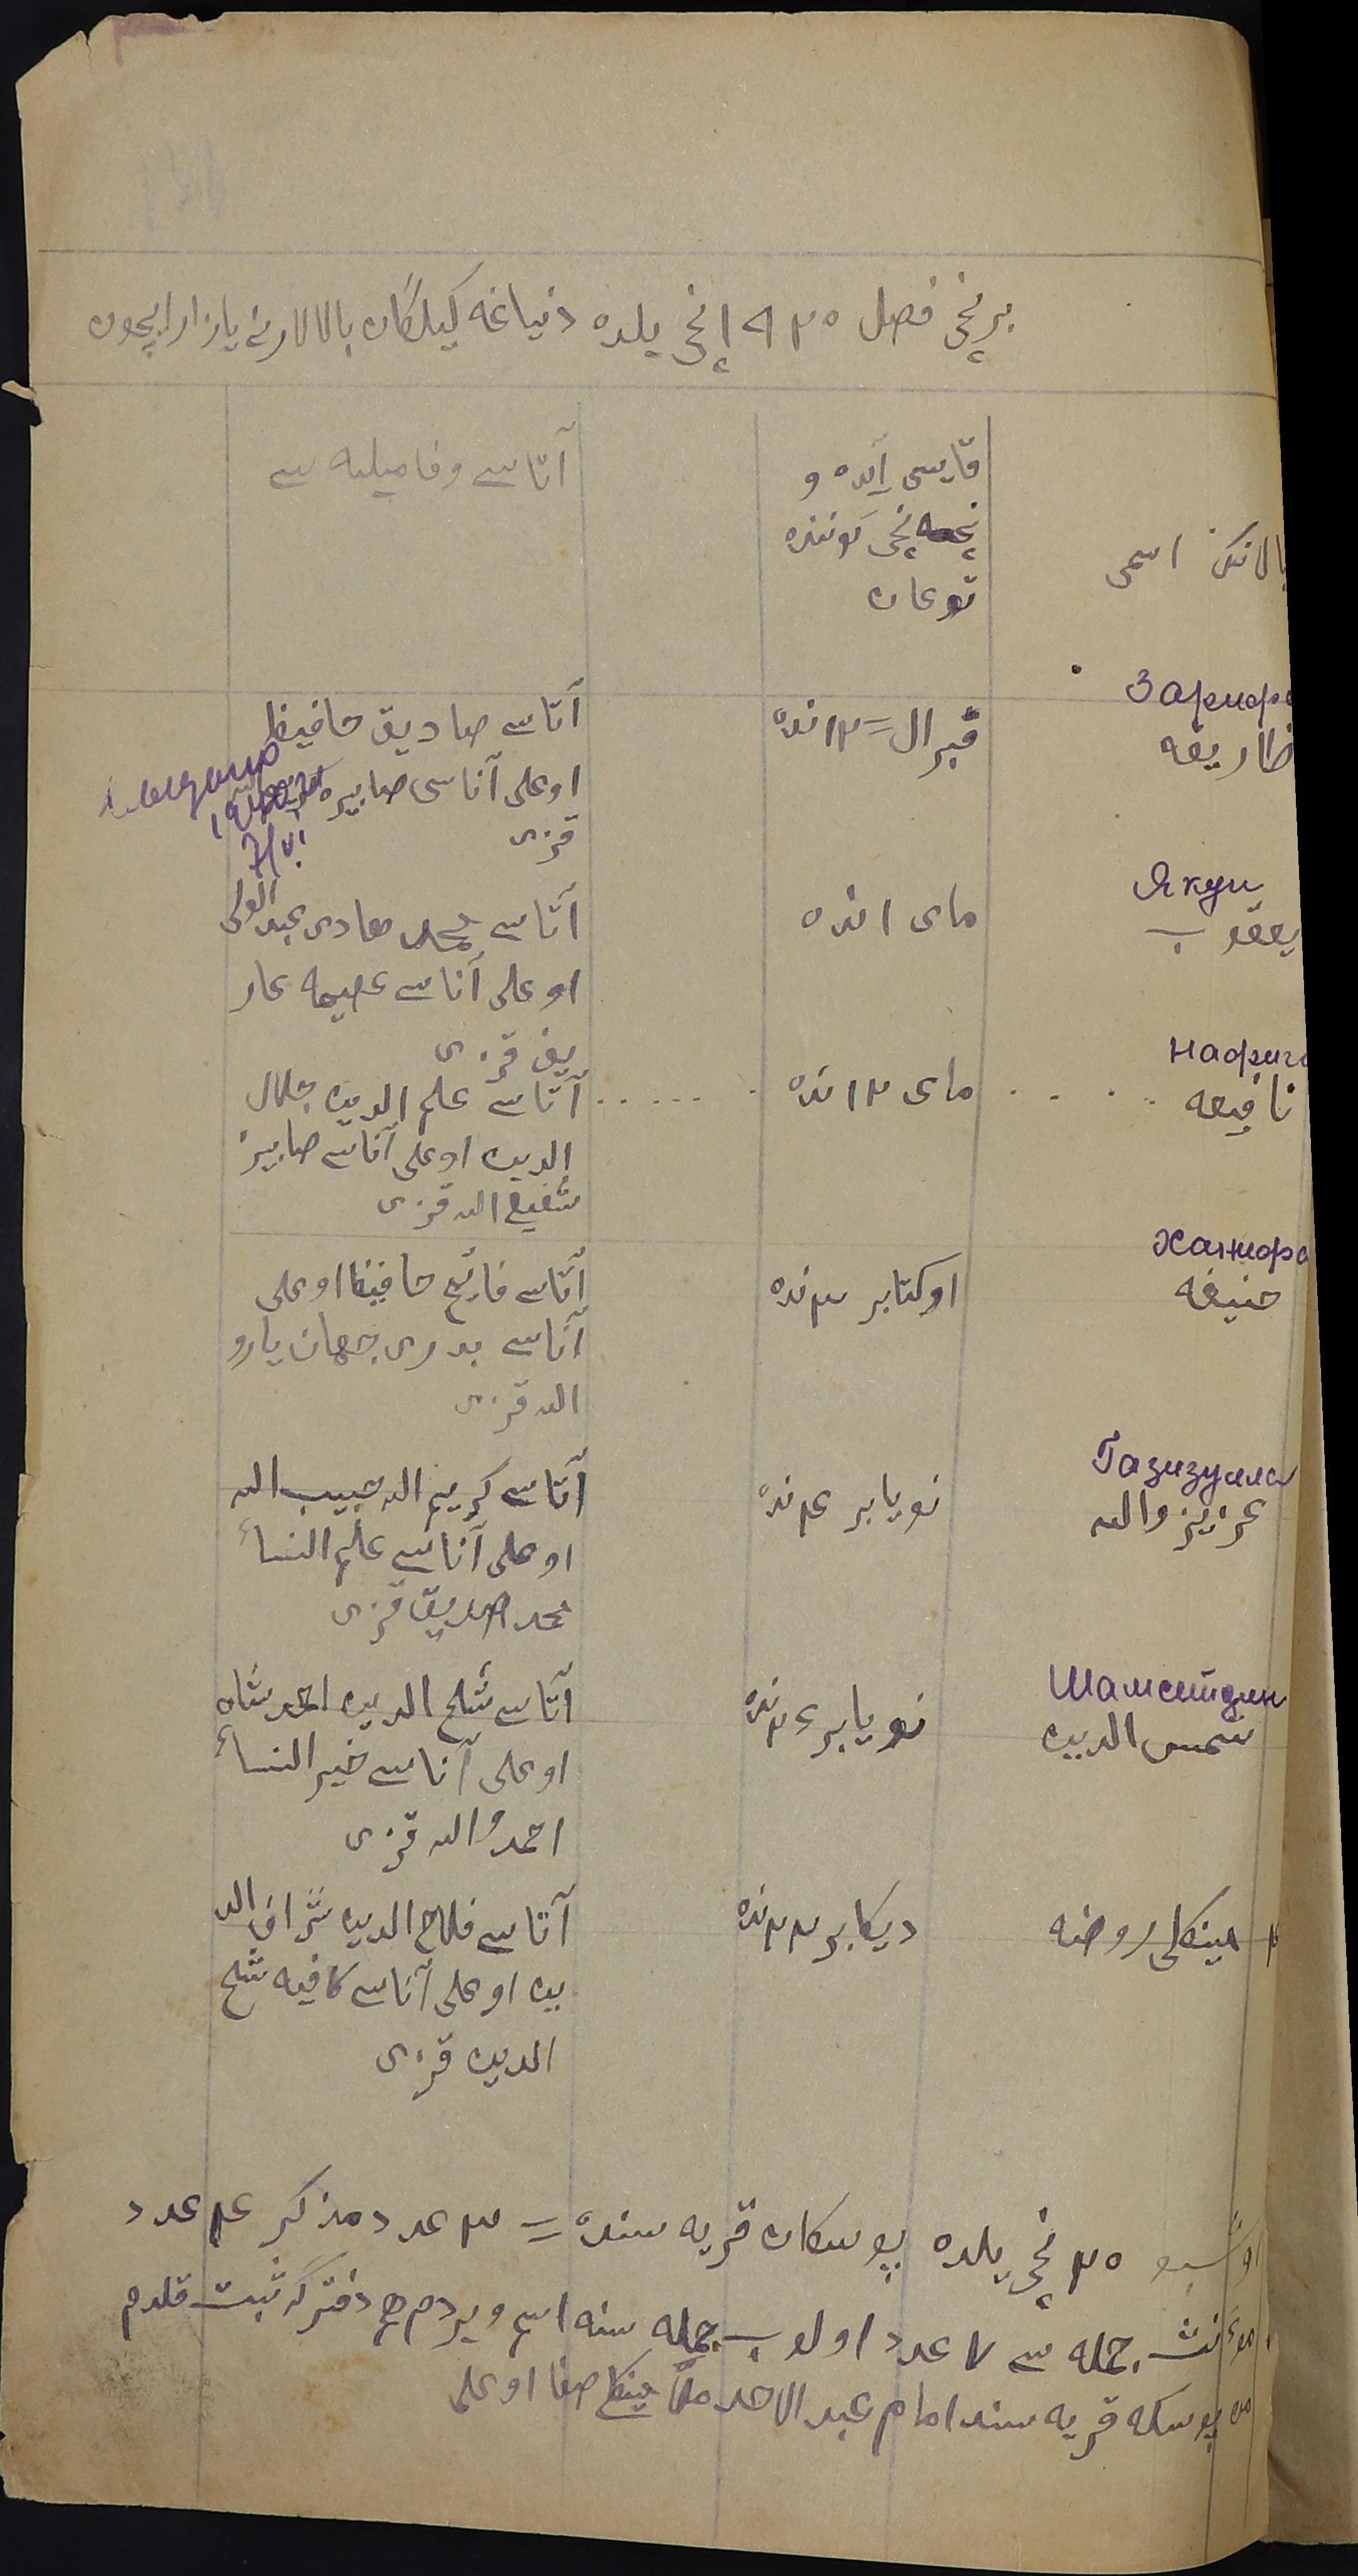 برنچی فصل ١٩٢٥ نچی یلده دنیاغه کیلگان بالالارنی یازار ایچون
بالانڭ اسمی
قایسی آیده و
نچی کوننده
توغان
آتاسے وفامیلیه سے
Зарифа
ظاریفه
فبرال = ١٢ نده
آتاسے صادیق حافیظ
اوغلی آناسی صابیره
قزی
Якуп
یعقوب
مای ١ نده
آتاسے محمد هادی عبد الولی
اوغلی آناسے عصیمه عار
یف قزی
Нафига
نافیعه
مای ١٢ نده
آتاسے علم الدین جلال
الدین اوغلی آناسے صابیره
شفیع الله قزی
Ханифа
حنیفه
اوکتابر ٣ نده
آتاسے فاتیح حافیظ اوغلی
آناسے بدری جهان یارو
الله قزی
Газизулла
عزیز والله
نویابر ٤ نده
آتاسے کریم الله حبیب الله
اوغلی آناسے علم النساء
محمد صدیق قزی
Шамситдин
شمس الدین
نویابر ٢٤ نده
آتاسے شیخ الدین احمد شاه
اوغلی آناسے خیر النساء
احمد والله قزی
مینکلی روضه
دیکابر ٢٣ نده
آتاسے فلاح الدین شراف الد
ین اوغلی آناسے کافیه شیخ
الدین قزی
اوشبو ٢٥ نچی یلده بوسکان قریه سنده = ٣ عدد مذکر ٤ عدد
مؤنث جمله سے ٧ عدد اولوب جمله سنه اسم ویردم هم دفترگه ثبت قلدم
من بوسکه قریه سنده امام عبد الاحد ملا مینکلی صفا اوغلی